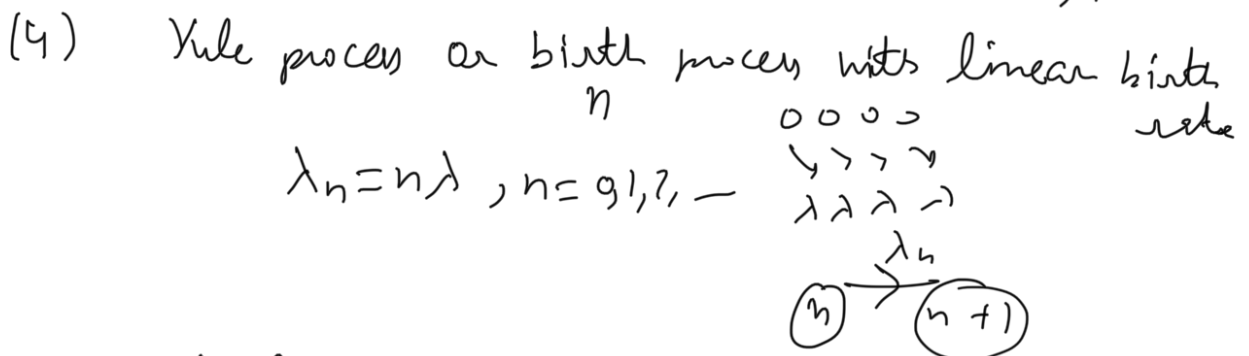 (4) Yule process or birth process with linear birth rate
n
0 0 0 0
λn = nλ , n = 0,1,2, —
λ λ λ λ
λn
n → n+1